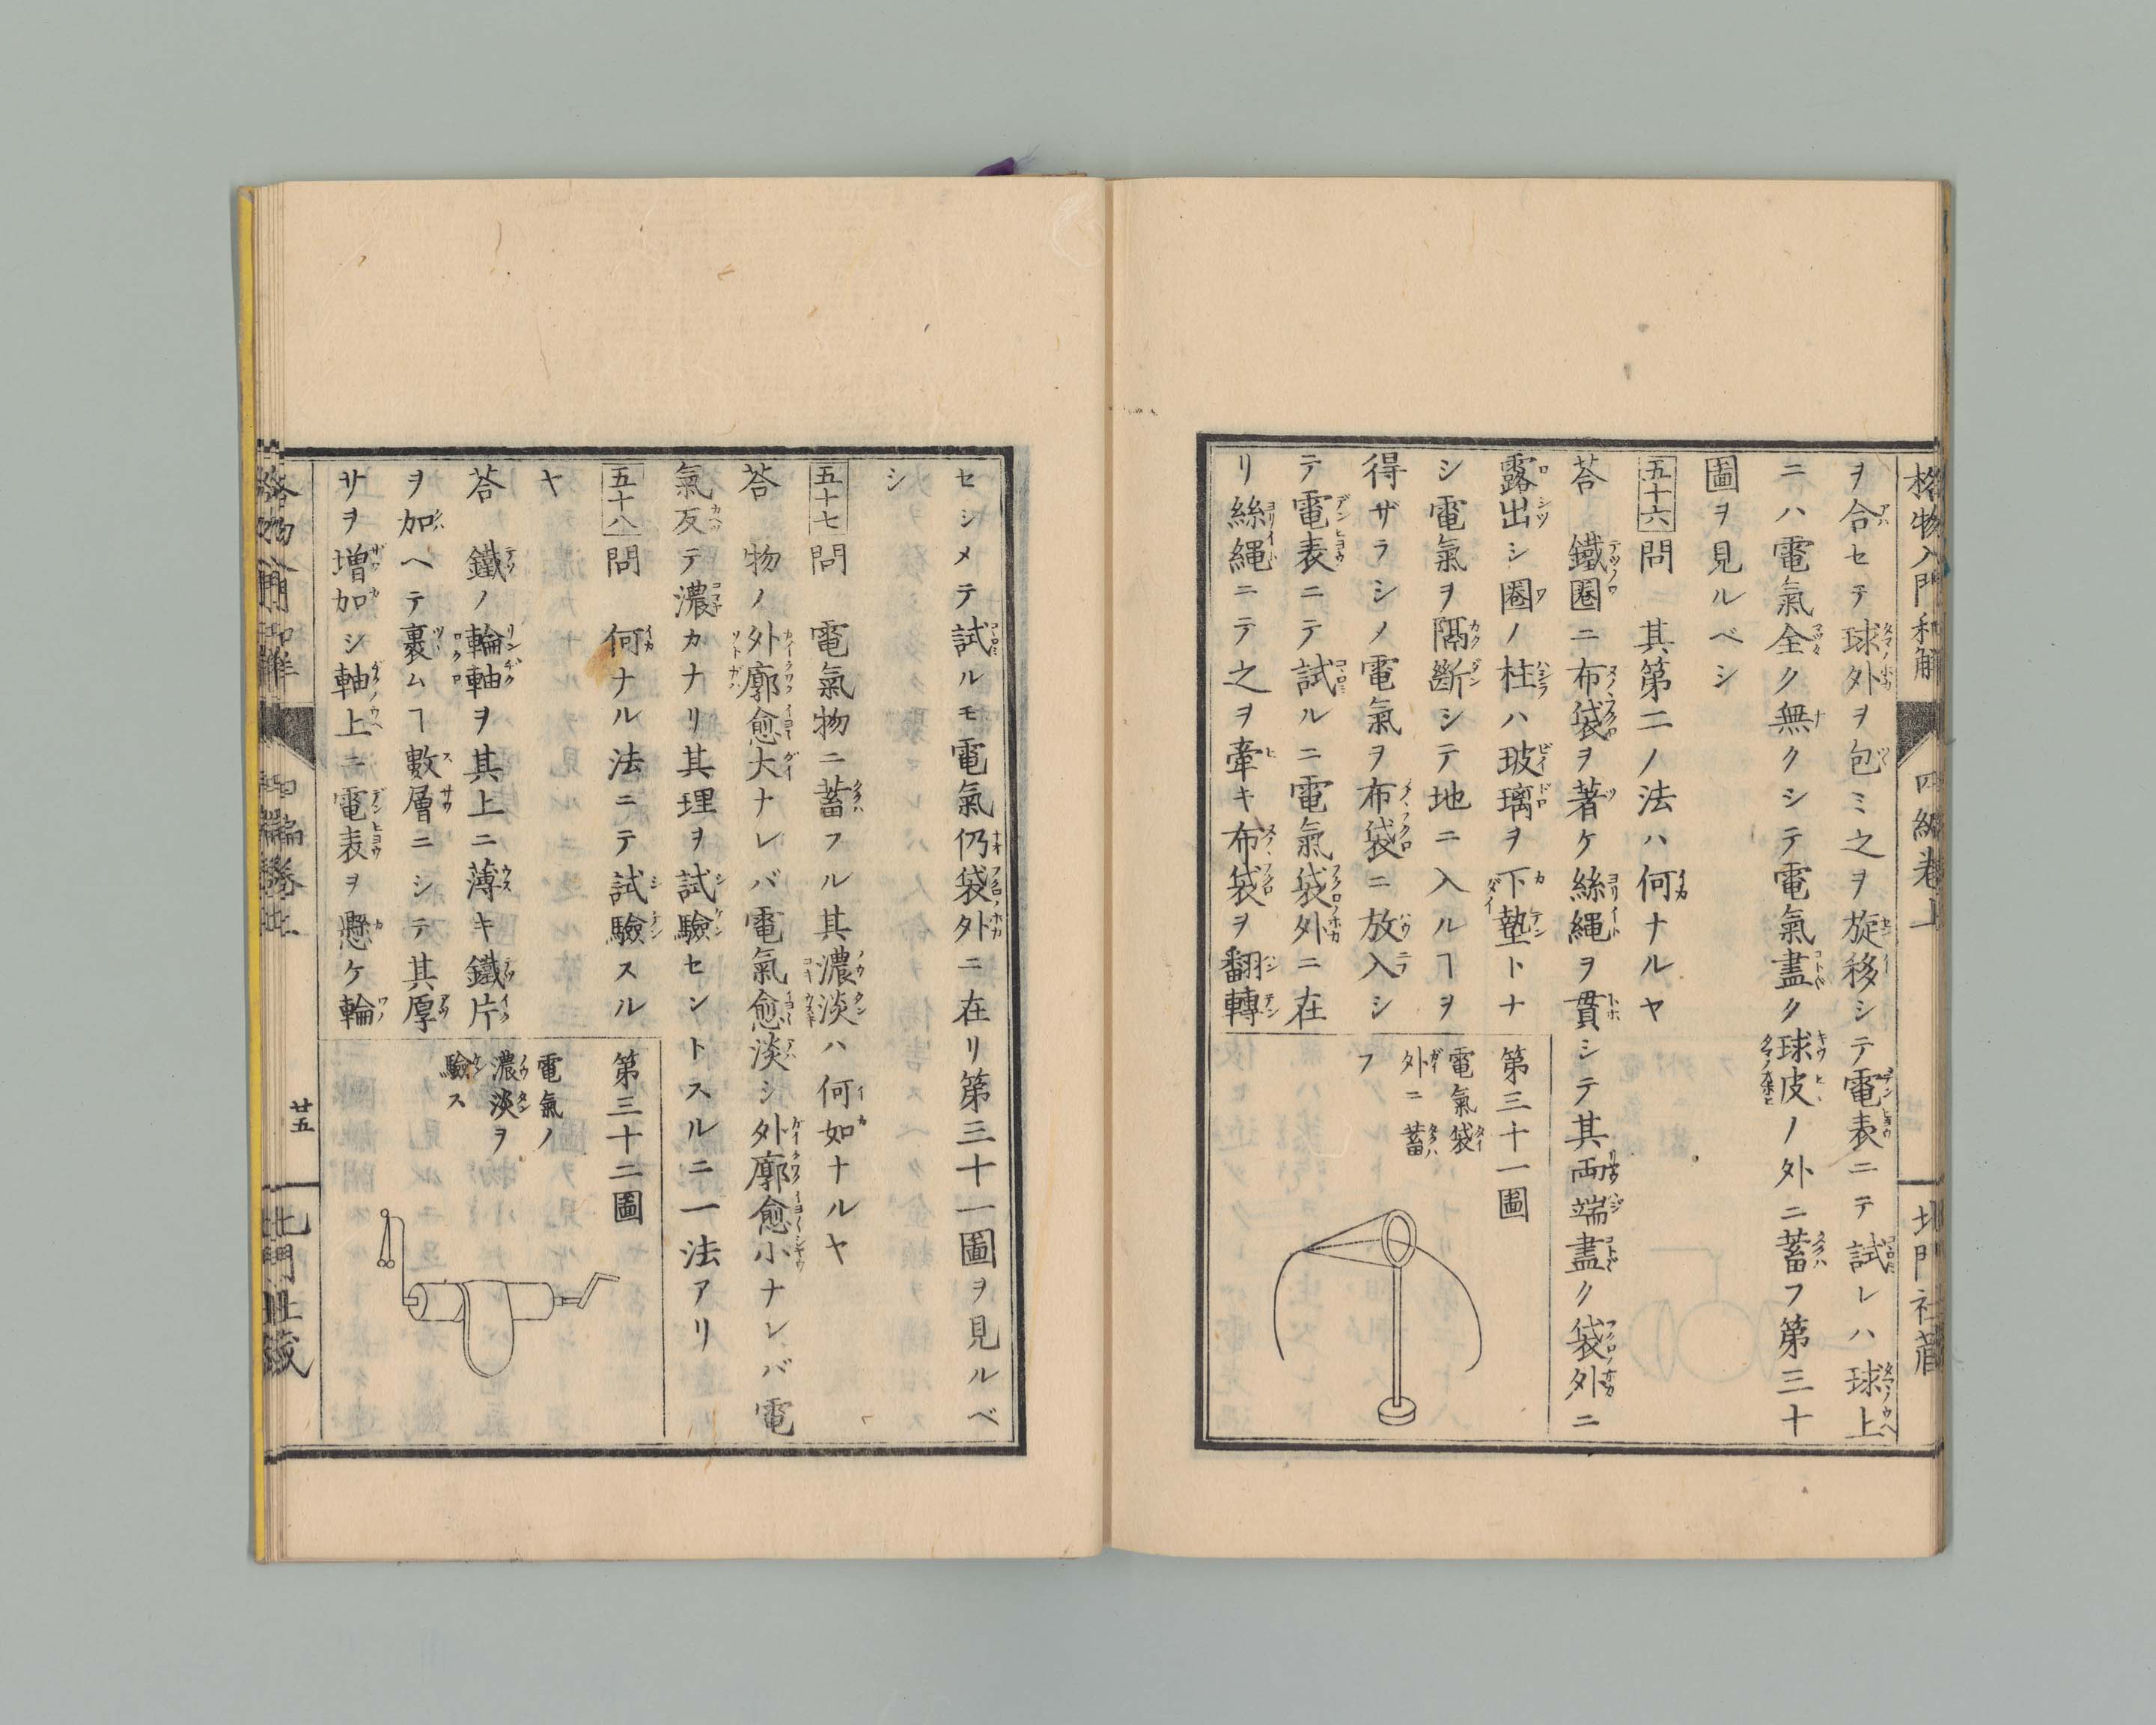 格物入門和解 四編卷上 北門社藏
ヲ合セテ球外ヲ包ミ之ヲ旋移シテ電表ニテ試レハ球上
ニハ電氣全ク無クシテ電氣盡ク球皮ノ外ニ蓄フ第三十
圖ヲ見ルベシ
五十六問 其第二ノ法ハ何ナルヤ
荅 鐵圈ニ布袋ヲ著ケ絲繩ヲ貫シテ其両端盡ク袋外ニ
露出シ圈ノ柱ハ玻璃ヲ下墊トナ
シ電氣ヲ隔斷シテ地ニ入ルヿヲ
得ザラシノ電氣ヲ布袋ニ放入シ
テ電表ニテ試ルニ電氣袋外ニ在
リ絲繩ニテ之ヲ牽キ布袋ヲ翻轉
第三十一圖
電氣袋
外ニ蓄
フ
セシメテ試ルモ電氣仍袋外ニ在リ第三十一圖ヲ見ルベ
シ
五十七問 電氣物ニ蓄フル其濃淡ハ何如ナルヤ
荅 物ノ外廓愈大ナレバ電氣愈淡シ外廓愈小ナレバ電
氣反テ濃カナリ其理ヲ試驗セントスルニ一法アリ
五十八問 何ナル法ニテ試驗スル
ヤ
荅 鐵ノ輪軸ヲ其上ニ薄キ鐵片
ヲ加ヘテ裹ムヿ數層ニシテ其厚
サヲ増加シ軸上ニ電表ヲ懸ケ輪
第三十二圖
電氣ノ
濃淡ヲ
驗ス
廿五
北門社藏